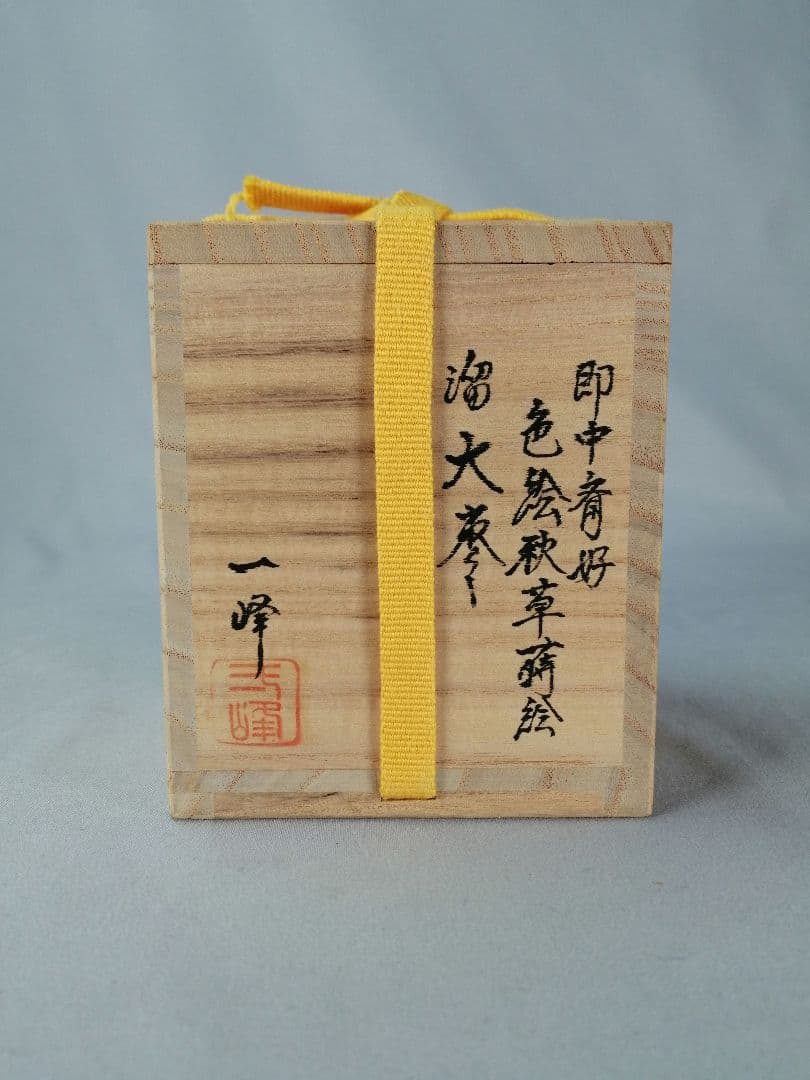 即中斎好
色絵秋草蒔絵
溜大棗
一峰
一峰